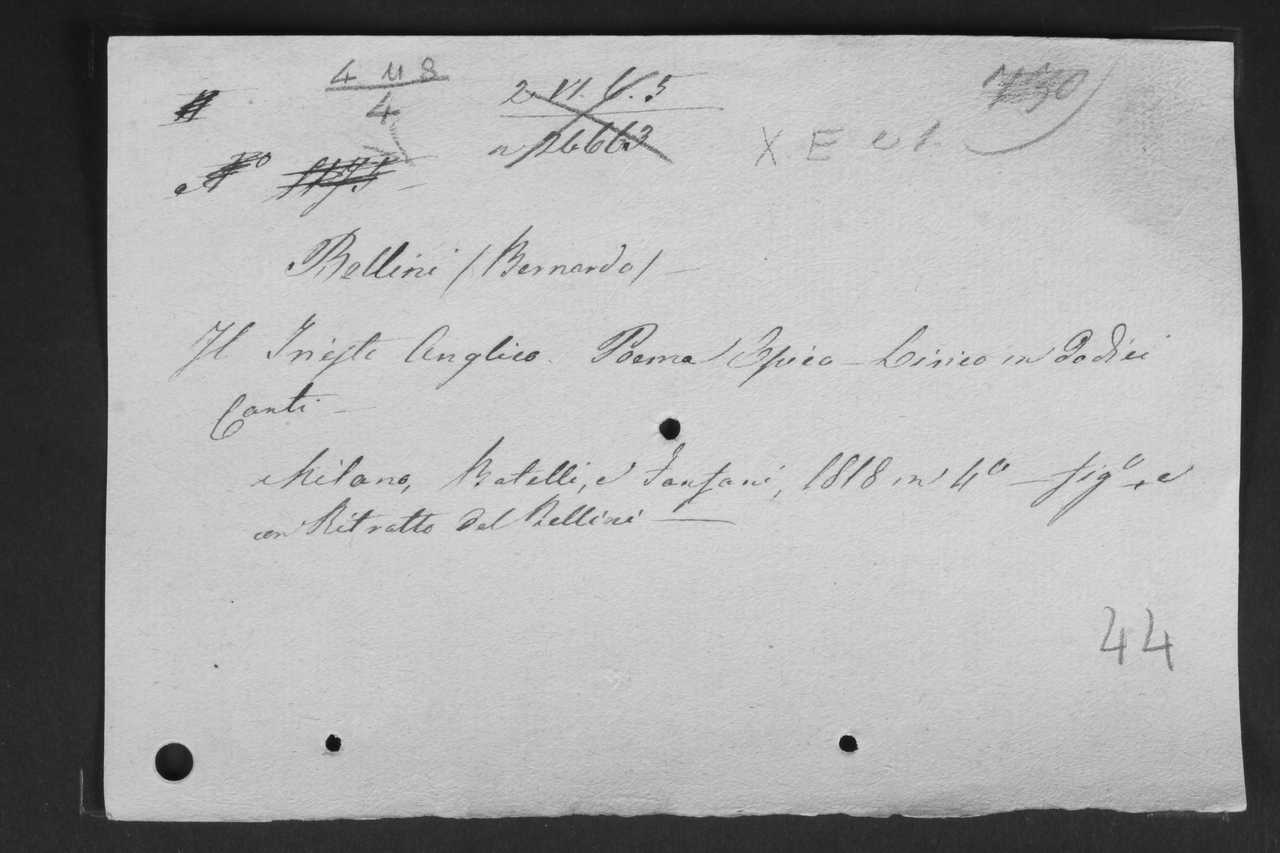 4 11 8
4
2. VI. G. 5
n 16663
X E e 1.
Bellini (Bernardo) —
Il Trieste Anglico. Poema Epico-Lirico in Dodici
Canti —
Milano, Batelli, e Fanfani, 1818 in 4º — figº, e
con Ritratto del Bellini —
44